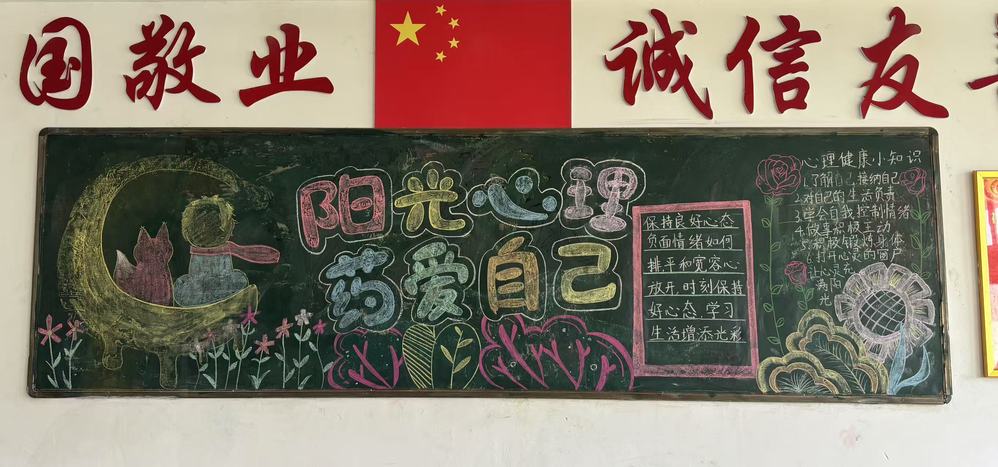 国敬业
诚信友
阳光心理
药爱自己
保持良好心态
负面情绪如何
排平和宽容心
放开,时刻保持
好心态,学习
生活增添光彩
心理健康小知识
1.了解自己接纳自己
2.对自己的生活负责
3.学会自我控制情绪
4.做事积极主动
5.积极锻炼身体
6.打开心灵的窗户
让心灵充
满阳
光